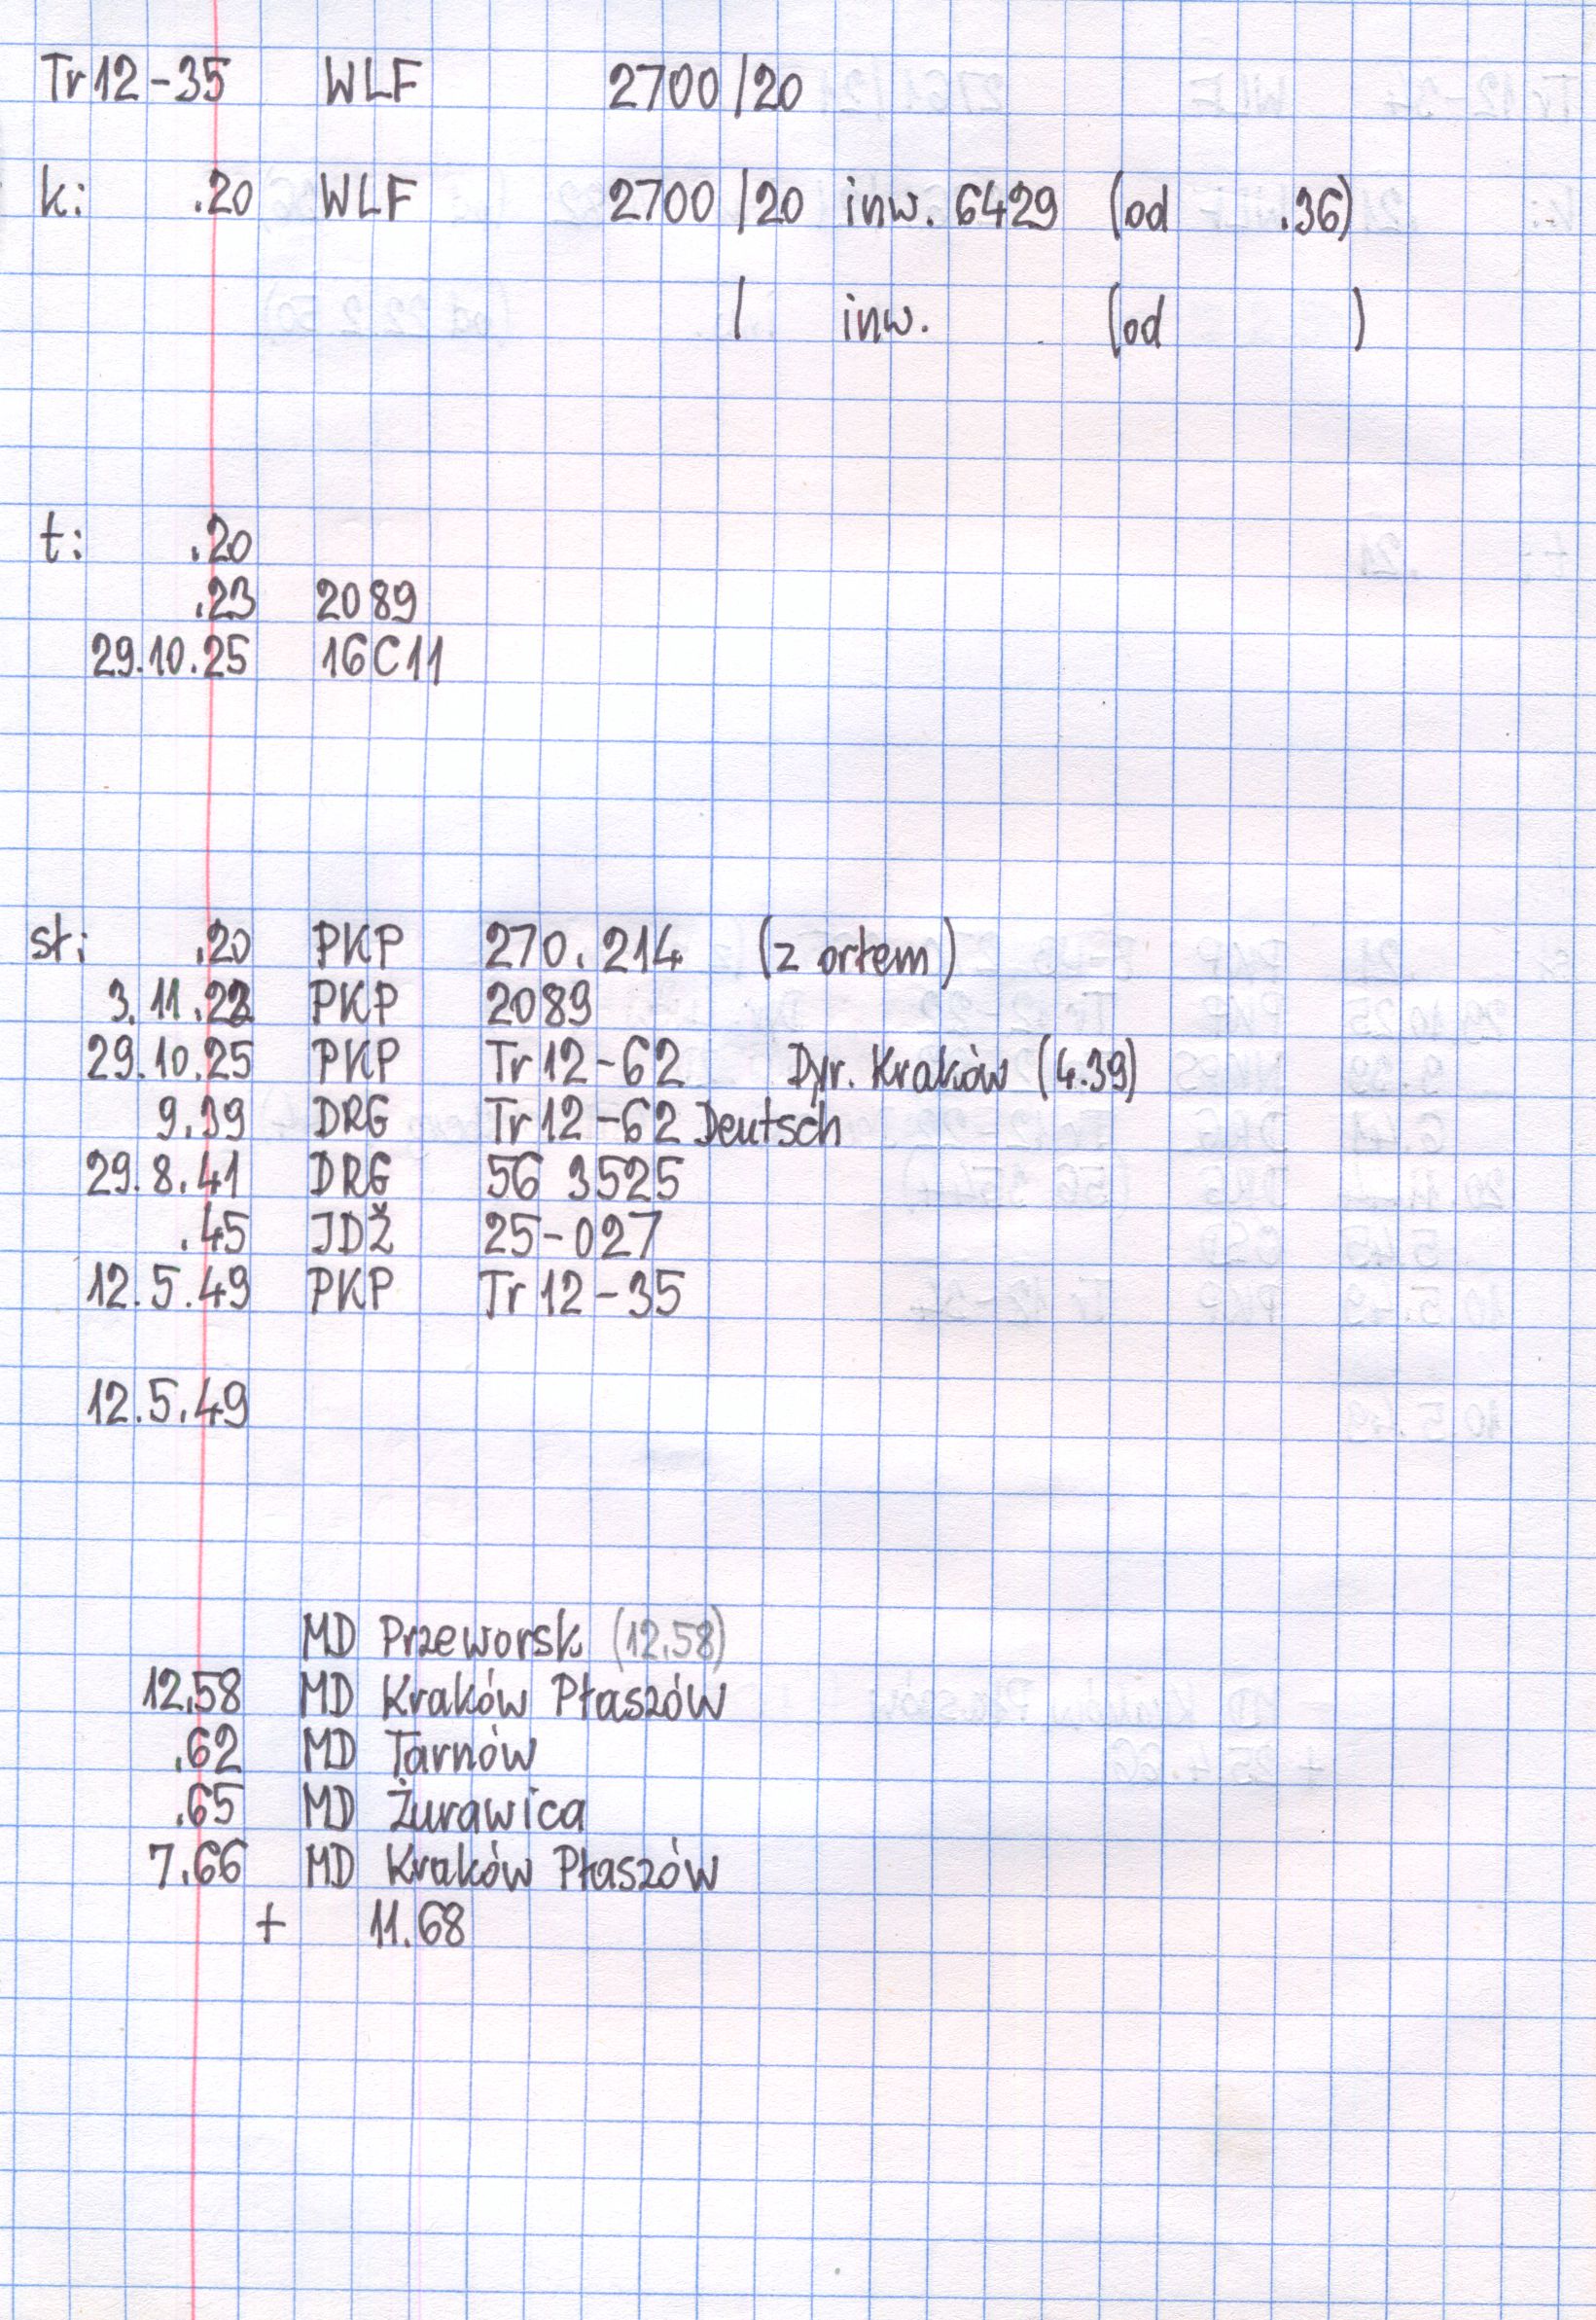 Tr12-35 WLF 2700/20
k: .20 WLF 2700/20 inw. 6429 (od .36)
/ inw. (od )
t: .20
.23 2089
29.10.25 16C11
st: .20 PKP 270.214 (z orłem)
3.11.23 PKP 2089
29.10.25 PKP Tr12-62 Dyr. Kraków (4.39)
9.39 DRG Tr12-62 Deutsch
29.8.41 DRG 56 3525
.45 JDŽ 25-027
12.5.49 PKP Tr12-35
12.5.49
MD Przeworsk (12.58)
12.58 MD Kraków Płaszów
.62 MD Tarnów
.65 MD Żurawica
7.66 MD Kraków Płaszów
+ 11.68